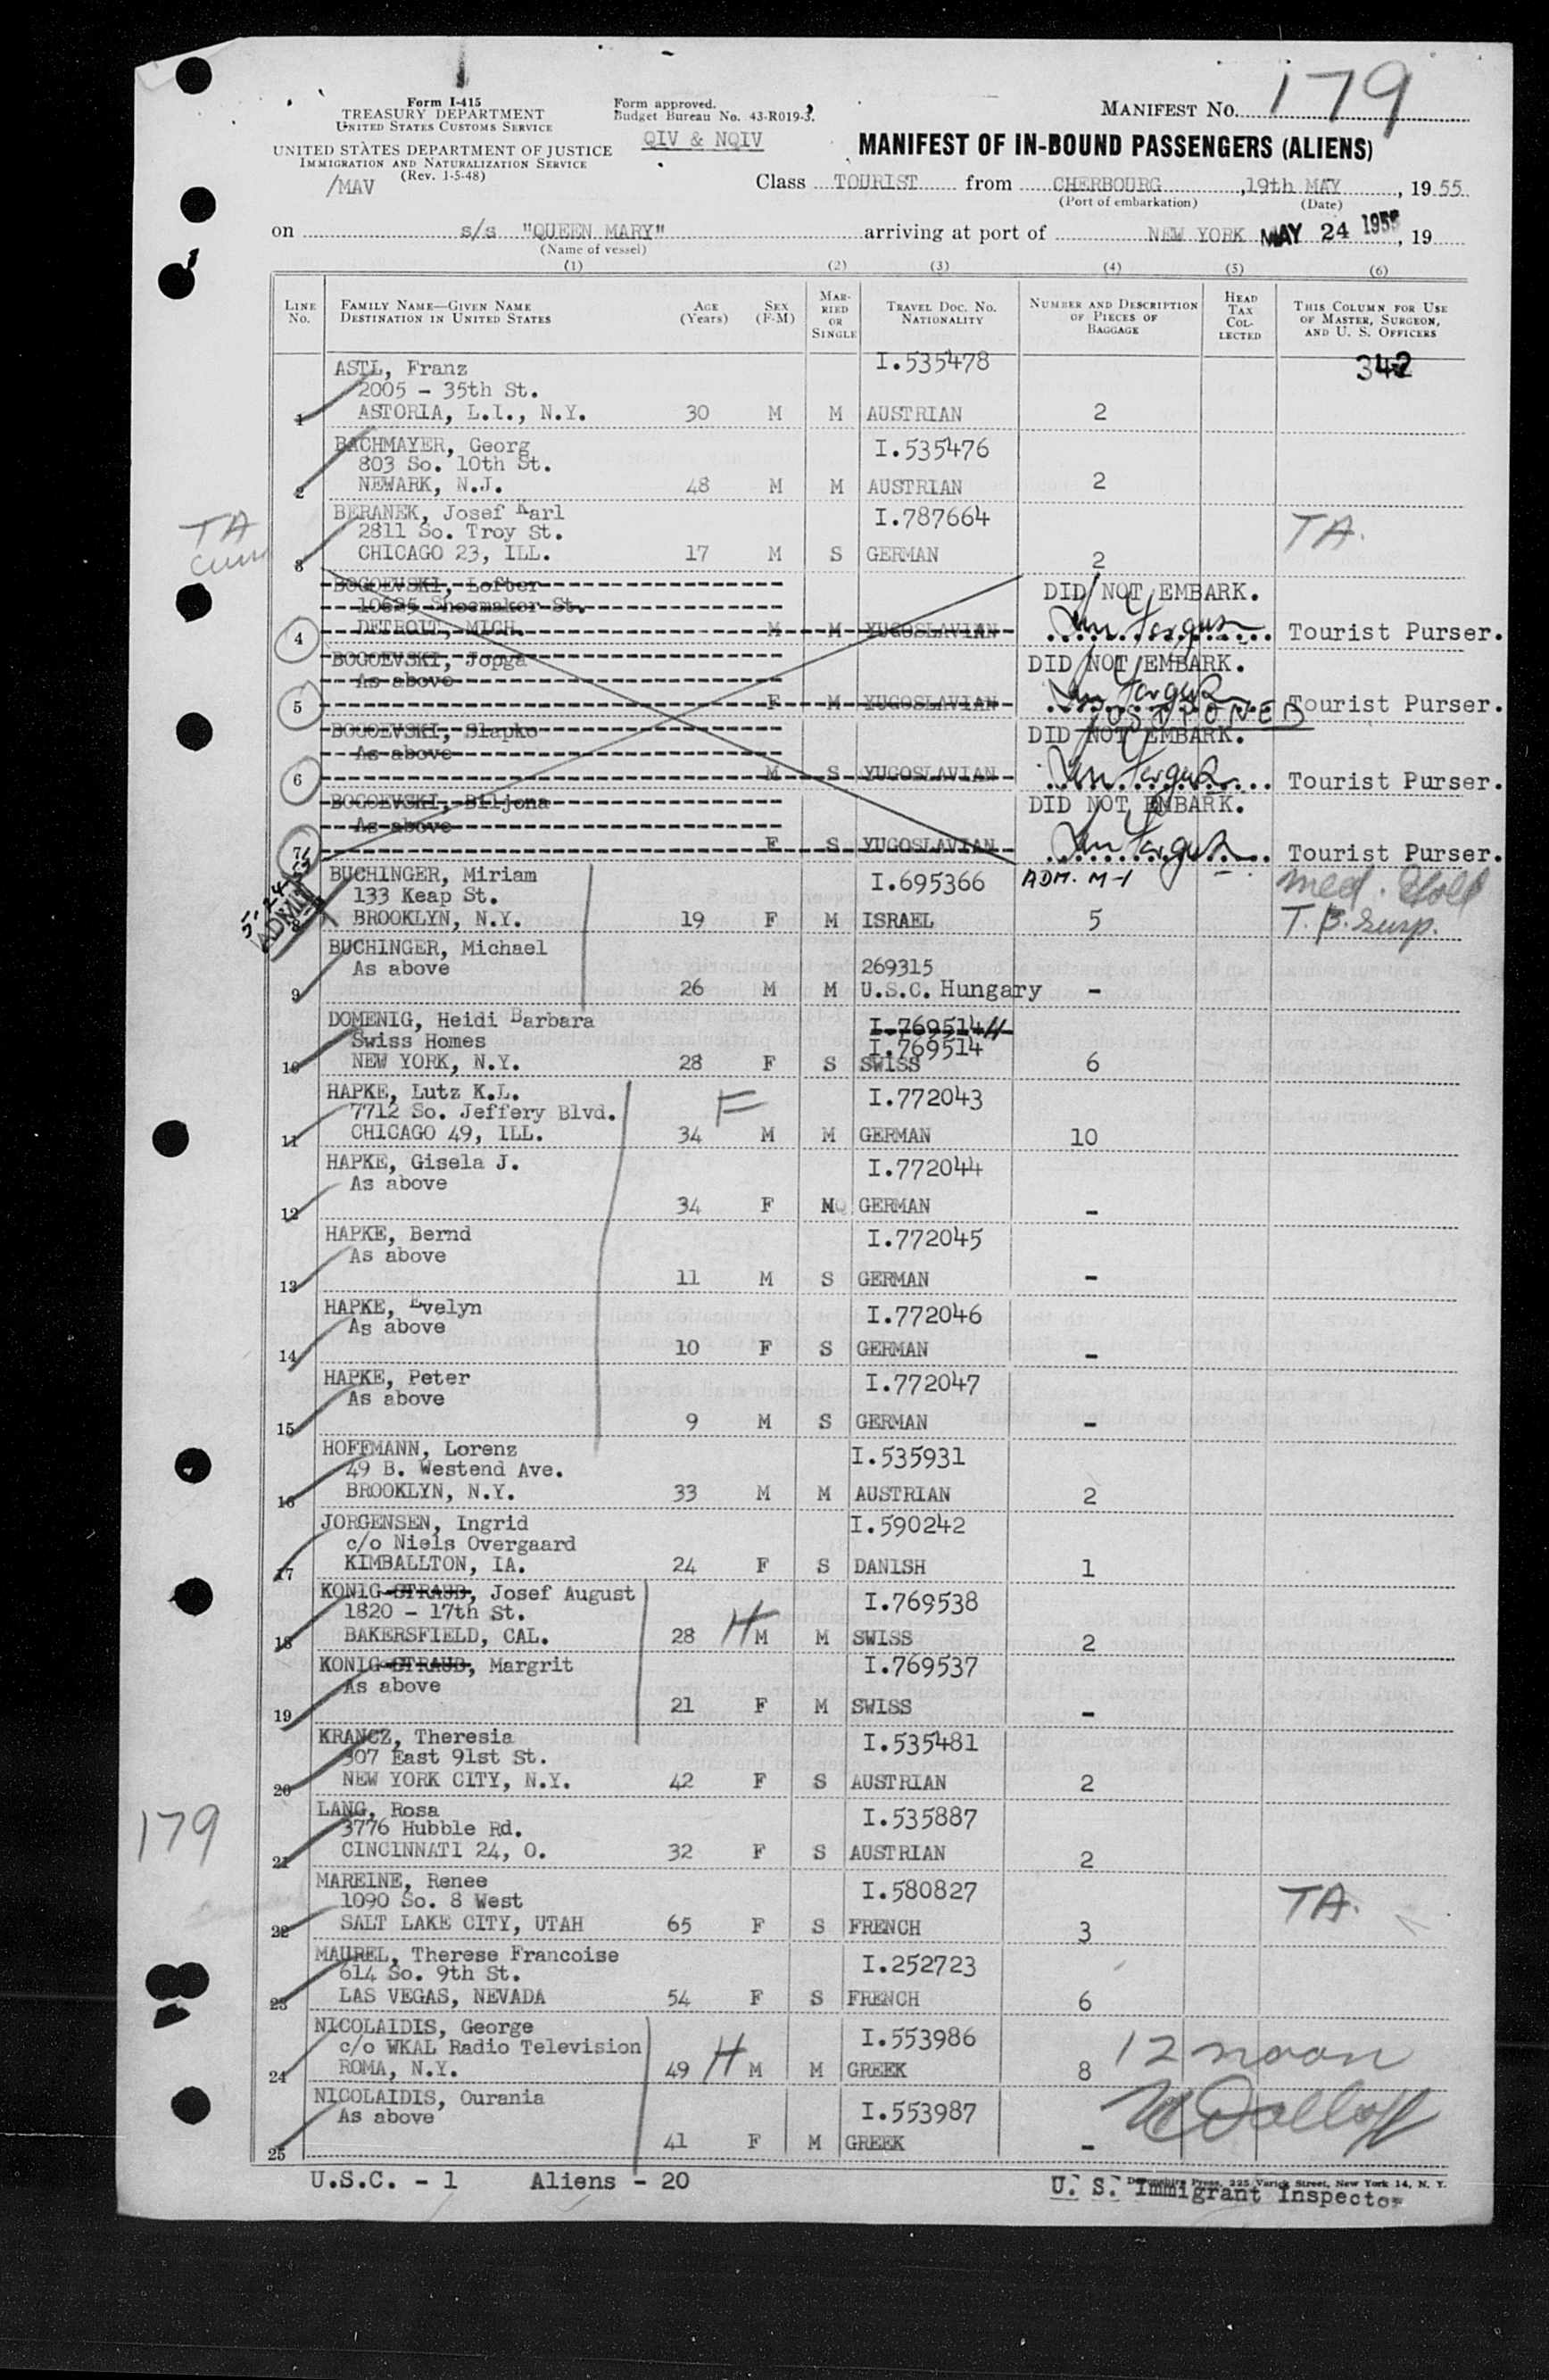 179
Form I-415
TREASURY DEPARTMENT
UNITED STATES CUSTOMS SERVICE
UNITED STATES DEPARTMENT OF JUSTICE
IMMIGRATION AND NATURALIZATION SERVICE
(Rev. 1-5-48)
/MAV
Form approved.
Budget Bureau No. 43-R019-3.
QIV & NQIV
MANIFEST NO.
MANIFEST OF IN-BOUND PASSENGERS (ALIENS)
Class TOURIST from CHERBOURG, 19th MAY, 1955
(Port of embarkation) (Date)
on s/s "QUEEN MARY" arriving at port of NEW YORK MAY 24 1955, 19
(Name of vessel)
(1) (2) (3) (4) (5) (6)
LINE No. FAMILY NAME—GIVEN NAME DESTINATION IN UNITED STATES AGE (Years) SEX (F-M) MARRIED OR SINGLE TRAVEL DOC. NO. NATIONALITY NUMBER AND DESCRIPTION OF PIECES OF BAGGAGE HEAD TAX COLLECTED THIS COLUMN FOR USE OF MASTER, SURGEON, AND U. S. OFFICERS
ASTL, Franz I.535478 342
2005 - 35th St.
1 ASTORIA, L.I., N.Y. 30 M M AUSTRIAN 2
BACHMAYER, Georg I.535476
803 So. 10th St.
2 NEWARK, N.J. 48 M M AUSTRIAN 2
BERANEK, Josef Karl I.787664
TA 2811 So. Troy St. TA.
3 CHICAGO 23, ILL. 17 M S GERMAN 2
BOGOEVSKI, Lofter DID NOT EMBARK.
10625 Shoemaker St.
4 DETROIT, MICH. M M YUGOSLAVIAN Tourist Purser.
BOGOEVSKI, Jopga DID NOT EMBARK.
As above
5 F M YUGOSLAVIAN Tourist Purser.
POSTPONED
BOGOEVSKI, Slapko DID NOT EMBARK.
As above
6 M S YUGOSLAVIAN Tourist Purser.
BOGOEVSKI, Biljona DID NOT EMBARK.
As above
7 F S YUGOSLAVIAN Tourist Purser.
BUCHINGER, Miriam I.695366 ADM. M-1 med.
133 Keap St.
ADMIT 8 BROOKLYN, N.Y. 19 F M ISRAEL 5 T.B. Susp.
BUCHINGER, Michael
As above 269315
9 26 M M U.S.C. Hungary -
DOMENIG, Heidi Barbara I.769514
Swiss Homes I.769514
10 NEW YORK, N.Y. 28 F S SWISS 6
HAPKE, Lutz K.L. F I.772043
7712 So. Jeffery Blvd.
11 CHICAGO 49, ILL. 34 M M GERMAN 10
HAPKE, Gisela J. I.772044
As above
12 34 F M GERMAN -
HAPKE, Bernd I.772045
As above
13 11 M S GERMAN -
HAPKE, Evelyn I.772046
As above
14 10 F S GERMAN -
HAPKE, Peter I.772047
As above
15 9 M S GERMAN -
HOFFMANN, Lorenz I.535931
49 B. Westend Ave.
16 BROOKLYN, N.Y. 33 M M AUSTRIAN 2
JORGENSEN, Ingrid I.590242
c/o Niels Overgaard
17 KIMBALLTON, IA. 24 F S DANISH 1
KONIG-STRAUB, Josef August I.769538
1820 - 17th St.
18 BAKERSFIELD, CAL. 28 H M M SWISS 2
KONIG-STRAUB, Margrit I.769537
As above
19 21 F M SWISS -
KRANCZ, Theresia I.535481
307 East 91st St.
20 NEW YORK CITY, N.Y. 42 F S AUSTRIAN 2
LANG, Rosa I.535887
179 3776 Hubble Rd.
21 CINCINNATI 24, O. 32 F S AUSTRIAN 2
MAREINE, Renee I.580827 TA.
1090 So. 8 West
22 SALT LAKE CITY, UTAH 65 F S FRENCH 3
MAUREL, Therese Francoise I.252723
614 So. 9th St.
23 LAS VEGAS, NEVADA 54 F S FRENCH 6
NICOLAIDIS, George I.553986
c/o WKAL Radio Television 12 noon
24 ROMA, N.Y. 49 H M M GREEK 8
NICOLAIDIS, Ourania I.553987
As above
25 41 F M GREEK -
U.S.C. - 1 Aliens - 20 Devonshire Press, 225 Varick Street, New York 14, N. Y.
U. S. Immigrant Inspector